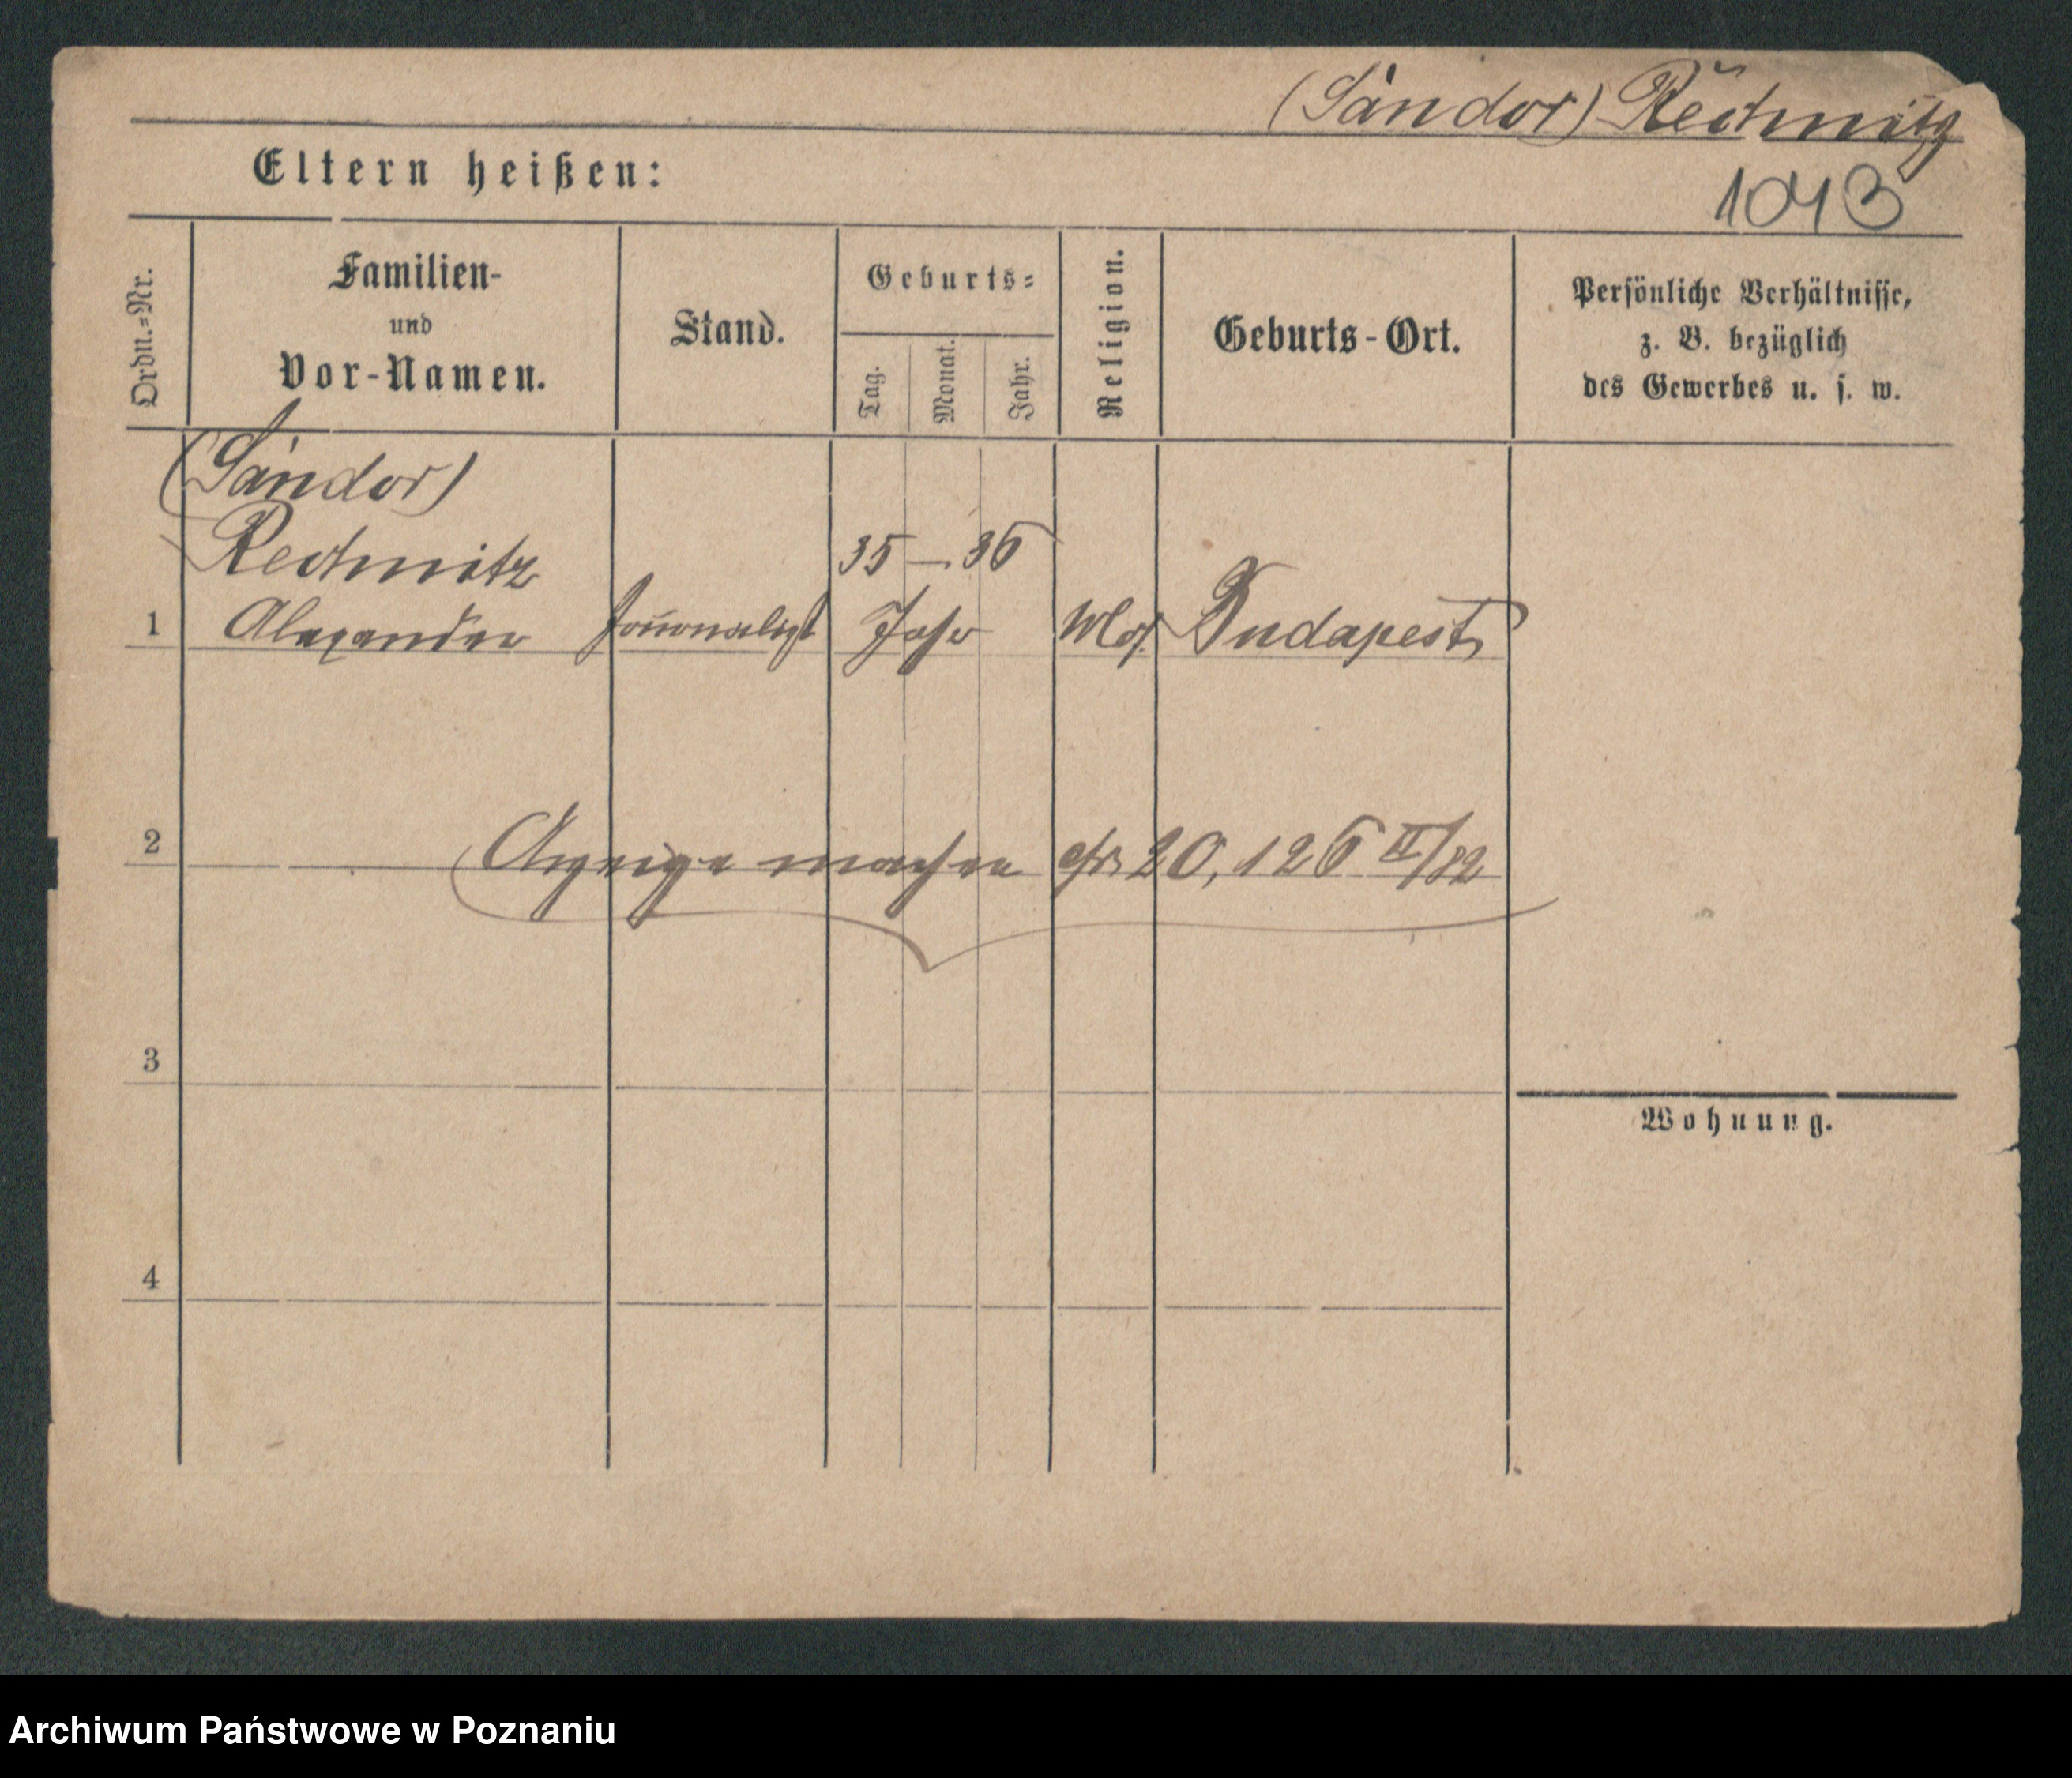 (Sándor) Rechnitz
1043
Eltern heißen:
Ordn.=Nr.
Familien-
und
Vor-Namen.
Stand.
Geburts=
Tag.
Monat.
Jahr.
Religion.
Geburts-Ort.
Persönliche Verhältnisse,
z. B. bezüglich
des Gewerbes u. s. w.
(Sándor)
Rechnitz
35 — 36
1 Alexander Journalist Jahr Mos. Budapest
2 Anzeige machen cfr. 20,126 II/82
3
Wohnung.
4
Archiwum Państwowe w Poznaniu